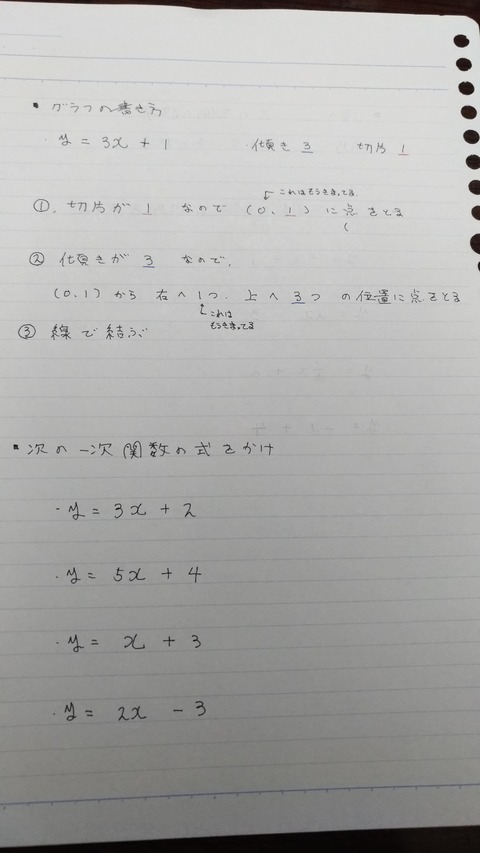 ・グラフの書き方
・y = 3x + 1 ・傾き 3 切片 1
これはもうきまってる
①. 切片が 1 なので (0, 1) に点をとる
② 傾きが 3 なので,
(0, 1) から 右へ 1つ. 上へ 3つ の位置に点をとる
これは
もうきまってる
③ 線で結ぶ
・次の一次関数の式をかけ
・y = 3x + 2
・y = 5x + 4
・y = x + 3
・y = 2x - 3